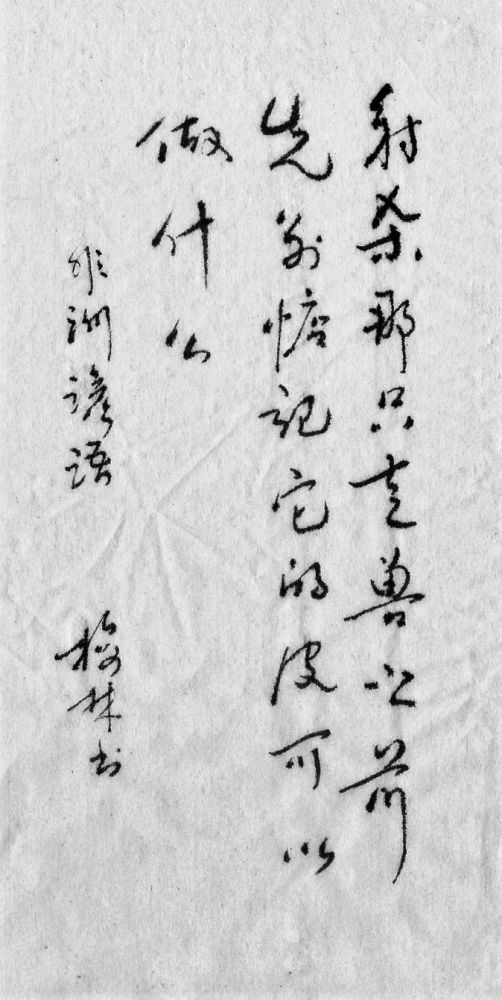 射杀那只走兽之前
先别惦记它的皮可以
做什么
非洲谚语
梅林书